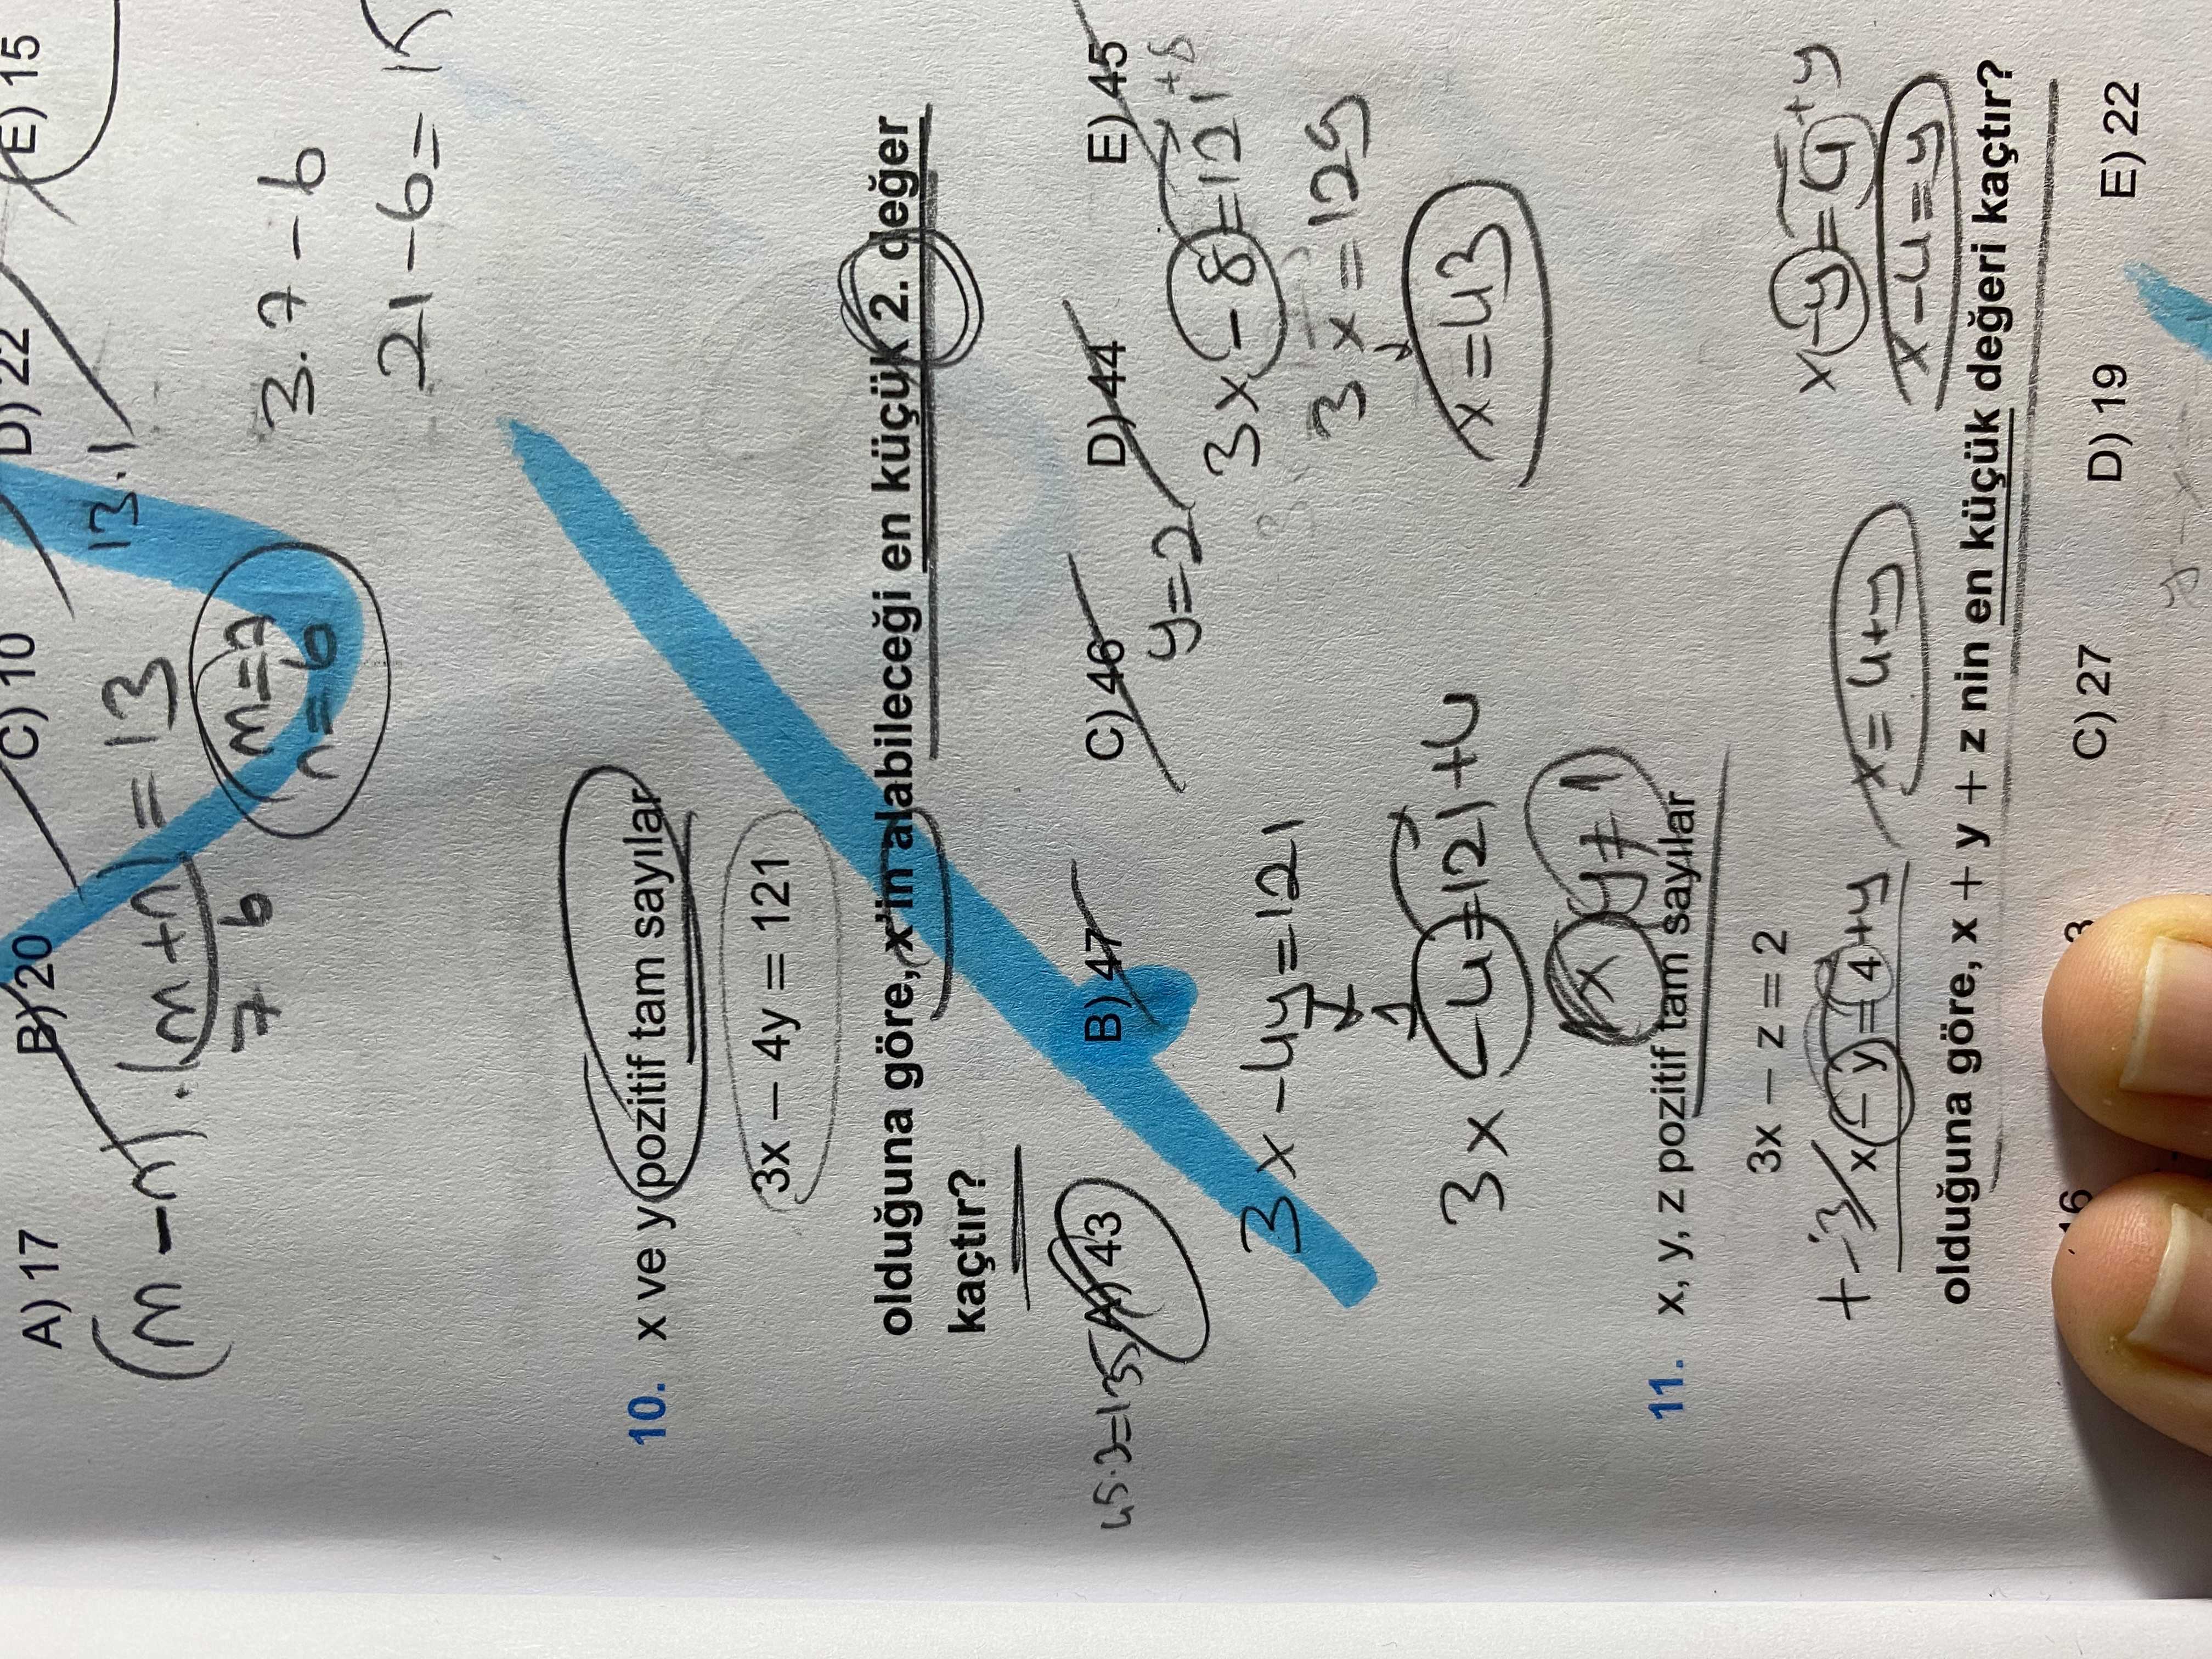 A) 17 B) 20 C) 10 D) 22 E) 15
13.1
(m-n).(m+n)=13
7 6
m=7
n=6
3.7-6
21-6=15
10. x ve y pozitif tam sayılar
3x - 4y = 121
olduğuna göre, x'in alabileceği en küçük 2. değer
kaçtır?
45.3=135
A) 43 B) 47 C) 46 D) 44 E) 45
y=2
3x-8=121+8
3x-4y=121
1
3x=129
3x-4=121+4
x=43
x y≠1
11. x, y, z pozitif tam sayılar
3x - z = 2
+ -3/ x - y = 4+y
x=4+y
x-y=4+y
x-4=y
olduğuna göre, x + y + z nin en küçük değeri kaçtır?
C) 27 D) 19 E) 22